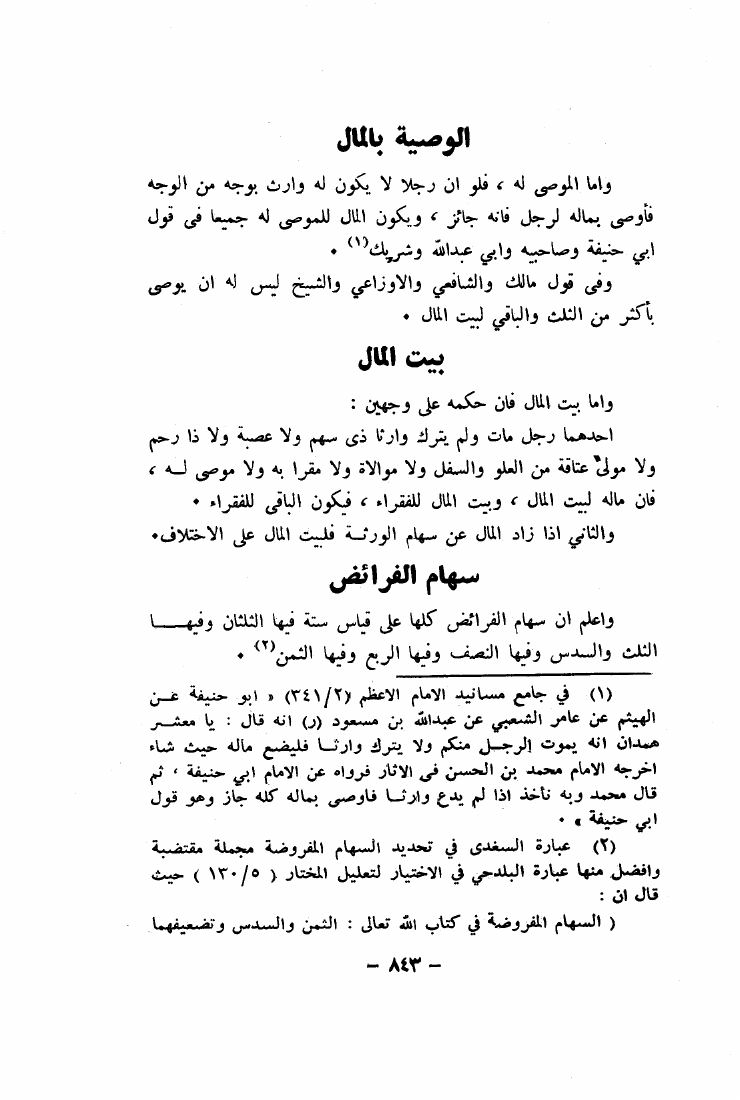 الوصية بالمال
واما الموصى له ، فلو ان رجلا لا يكون له وارث بوجه من الوجه
فأوصى بماله لرجل فانه جائز ، ويكون المال للموصى له جميعا فى قول
ابي حنيفة وصاحبيه وابي عبدالله وشريك(١) .
وفى قول مالك والشافعي والاوزاعي والشيخ ليس له ان يوصى
بأكثر من الثلث والباقي لبيت المال .
بيت المال
واما بيت المال فان حكمه على وجهين :
احدهما رجل مات ولم يترك وارثا ذى سهم ولا عصبة ولا ذا رحم
ولا مولى عتاقة من العلو والسفل ولا موالاة ولا مقرا به ولا موصى لـه ،
فان ماله لبيت المال ، وبيت المال للفقراء ، فيكون الباقى للفقراء .
والثاني اذا زاد المال عن سهام الورثـة فلبيت المال على الاختلاف.
سهام الفرائض
واعلم ان سهام الفرائض كلها على قياس ستة فيها الثلثان وفيهـــا
الثلث والسدس وفيها النصف وفيها الربع وفيها الثمن(٢) .
(١) في جامع مسانيد الامام الاعظم (٣٤١/٢) « ابو حنيفة عـن
الهيثم عن عامر الشعبي عن عبدالله بن مسعود (ر) انه قال : يا معشـر
همدان انه يموت الرجـل منكم ولا يترك وارثـا فليضع ماله حيث شاء
اخرجه الامام محمد بن الحسن فى الاثار فرواه عن الامام ابي حنيفة ، ثم
قال محمد وبه نأخذ اذا لم يدع وارثـا فاوصى بماله كله جاز وهو قول
ابي حنيفة » .
(٢) عبارة السغدى في تحديد السهام المفروضة مجملة مقتضبة
وافضل منها عبارة البلدحي في الاختيار لتعليل المختار ( ١٣٠/٥ ) حيث
قال ان :
( السهام المفروضة في كتاب الله تعالى : الثمن والسدس وتضعيفهما
- ٨٤٣ -